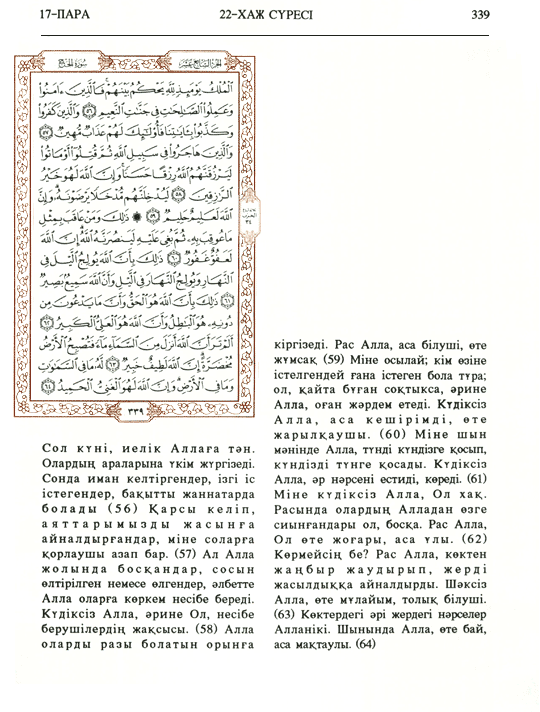 17–ПАРА
22–ХАЖ СҮРЕСІ
339
الجزء السابع عشر
سورة الحج
الْمُلْكُ يَوْمَئِذٍ لِلَّهِ يَحْكُمُ بَيْنَهُمْ فَالَّذِينَ ءَامَنُوا
وَعَمِلُوا الصَّالِحَاتِ فِي جَنَّاتِ النَّعِيمِ ٥٦ وَالَّذِينَ كَفَرُوا
وَكَذَّبُوا بِآيَاتِنَا فَأُولَئِكَ لَهُمْ عَذَابٌ مُهِينٌ ٥٧
وَالَّذِينَ هَاجَرُوا فِي سَبِيلِ اللَّهِ ثُمَّ قُتِلُوا أَوْ مَاتُوا
لَيَرْزُقَنَّهُمُ اللَّهُ رِزْقًا حَسَنًا وَإِنَّ اللَّهَ لَهُوَ خَيْرُ
الرَّازِقِينَ ٥٨ لَيُدْخِلَنَّهُمْ مُدْخَلًا يَرْضَوْنَهُ وَإِنَّ
اللَّهَ لَعَلِيمٌ حَلِيمٌ ٥٩ ۞ ذَلِكَ وَمَنْ عَاقَبَ بِمِثْلِ
مَا عُوقِبَ بِهِ ثُمَّ بُغِيَ عَلَيْهِ لَيَنْصُرَنَّهُ اللَّهُ إِنَّ اللَّهَ
لَعَفُوٌّ غَفُورٌ ٦٠ ذَلِكَ بِأَنَّ اللَّهَ يُولِجُ اللَّيْلَ فِي
النَّهَارِ وَيُولِجُ النَّهَارَ فِي اللَّيْلِ وَأَنَّ اللَّهَ سَمِيعٌ بَصِيرٌ
٦١ ذَلِكَ بِأَنَّ اللَّهَ هُوَ الْحَقُّ وَأَنَّ مَا يَدْعُونَ مِنْ
دُونِهِ هُوَ الْبَاطِلُ وَأَنَّ اللَّهَ هُوَ الْعَلِيُّ الْكَبِيرُ ٦٢
أَلَمْ تَرَ أَنَّ اللَّهَ أَنْزَلَ مِنَ السَّمَاءِ مَاءً فَتُصْبِحُ الْأَرْضُ
مُخْضَرَّةً إِنَّ اللَّهَ لَطِيفٌ خَبِيرٌ ٦٣ لَهُ مَا فِي السَّمَاوَاتِ
وَمَا فِي الْأَرْضِ وَإِنَّ اللَّهَ لَهُوَ الْغَنِيُّ الْحَمِيدُ ٦٤
٣٣٩
Сол күні, иелік Аллаға тән.
Олардың араларына үкім жүргізеді.
Сонда иман келтіргендер, ізгі іс
істегендер, бақытты жаннатарда
болады (56) Қарсы келіп,
аяттарымызды жасынға
айналдырғандар, міне соларға
қорлаушы азап бар. (57) Ал Алла
жолында босқандар, сосын
өлтірілген немесе өлгендер, әлбетте
Алла оларға көркем несібе береді.
Күдіксіз Алла, әрине Ол, несібе
берушілердің жақсысы. (58) Алла
оларды разы болатын орынға
кіргізеді. Рас Алла, аса білуші, өте
жұмсақ (59) Міне осылай; кім өзіне
істелгендей ғана істеген бола тұра;
ол, қайта бұған соқтықса, әрине
Алла, оған жәрдем етеді. Күдіксіз
Алла, аса кешірімді, өте
жарылқаушы. (60) Міне шын
мәнінде Алла, түнді күндізге қосып,
күндізді түнге қосады. Күдіксіз
Алла, әр нәрсені естиді, көреді. (61)
Міне күдіксіз Алла, Ол хақ.
Расында олардың Алладан өзге
сиынғандары ол, босқа. Рас Алла,
Ол өте жоғары, аса ұлы. (62)
Көрмейсің бе? Рас Алла, көктен
жаңбыр жаудырып, жерді
жасылдыққа айналдырды. Шәксіз
Алла, өте мұлайым, толық білуші.
(63) Көктердегі әрі жердегі нәрселер
Алланікі. Шынында Алла, өте бай,
аса мақтаулы. (64)